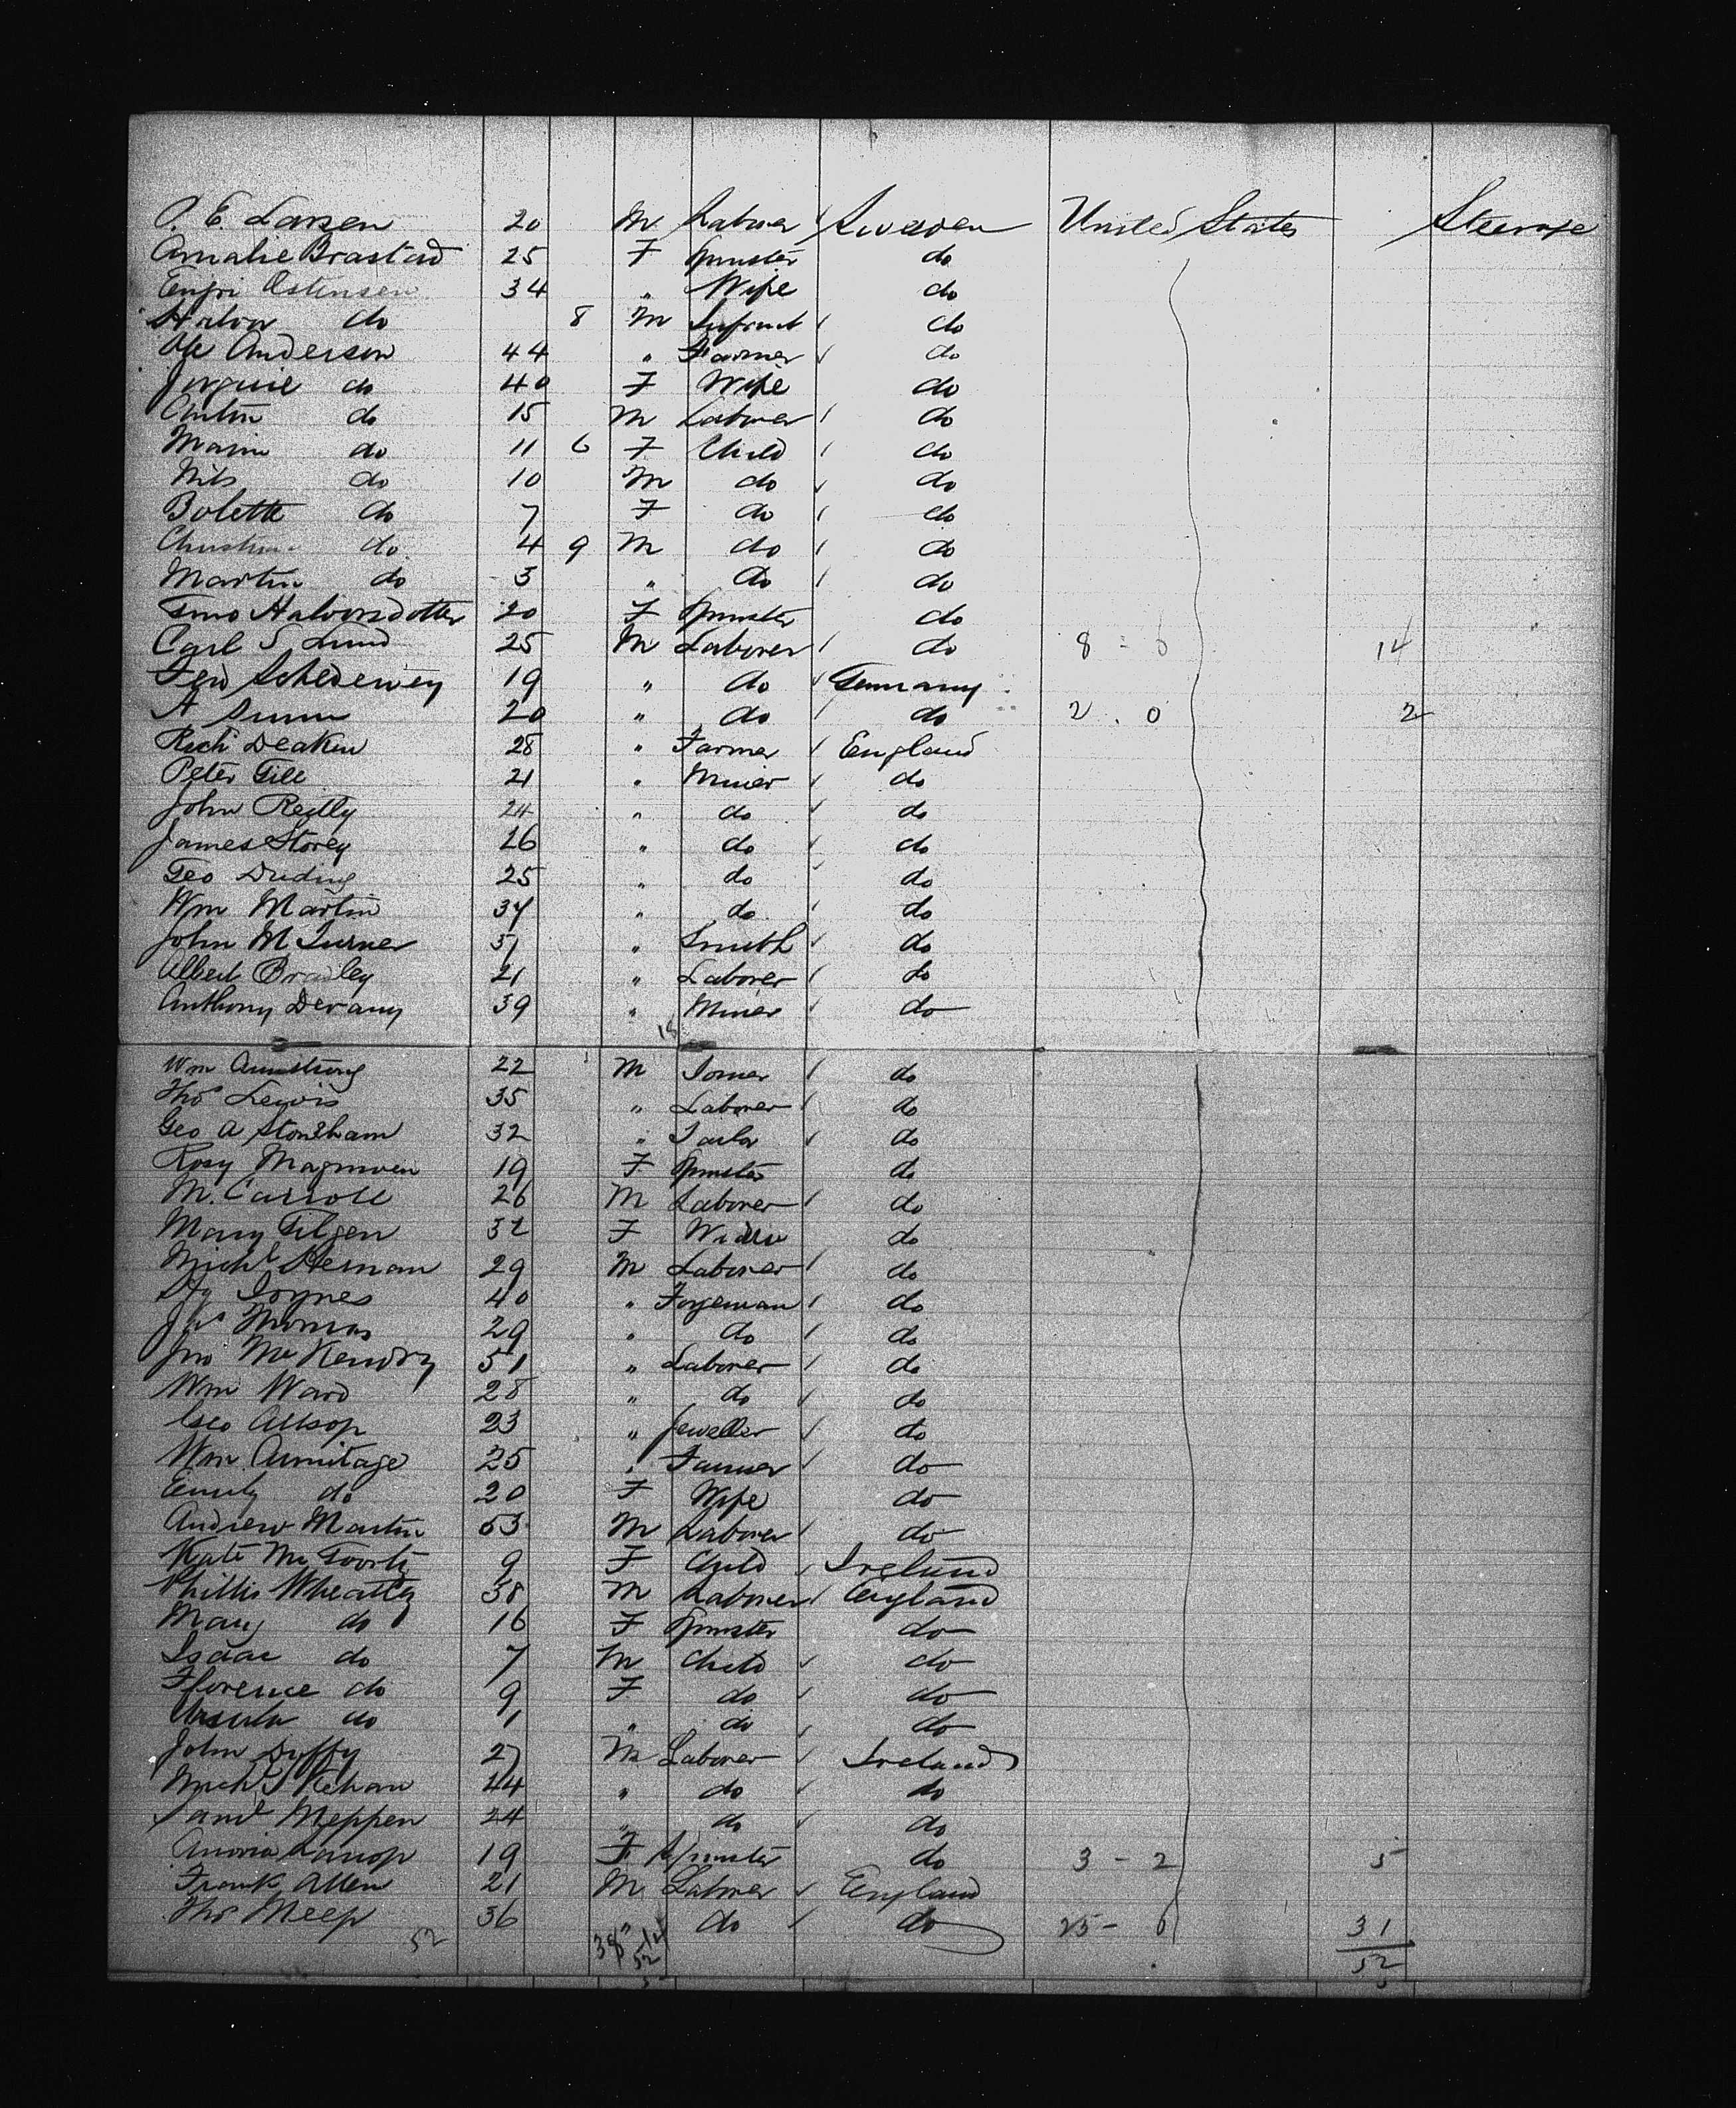 O. E. Larsen 20 M Laborer Sweden United States Steerage
Amalie Brastad 25 F Spinster do
Engri Ostensen 34 " Wife do
Halvor do 8 M Infant do
Ole Anderson 44 " Farmer do
do 40 F Wife do
Anton do 15 M Laborer do
do 11 6 F Child do
Nils do 10 M do do
Bolette do 7 F do do
do 4 9 M do do
Martin do 3 " do do
Halvorsdotter 20 F Spinster do
Carl S Lund 25 M Laborer do 8 - 6 14
19 " do Germany
A 20 " do do 2 . 0 2
Rich Deakin 28 " Farmer England
Peter Gill 21 " Miner do
John Reilly 24 " do do
James Storey 26 " do do
Geo 25 " do do
Wm Martin 34 " do do
John M Turner 51 " Smith do
Albert 21 " Laborer do
Anthony Devany 39 " Miner do
Wm Armstrong 22 M Joiner do
Thos Lewis 35 " Laborer do
Geo A Stoneham 32 " do
Rosy 19 F Spinster do
M. Carroll 26 M Laborer do
Mary 32 F do
Michl 29 M Laborer do
Joynes 40 " Forgeman do
Thomas 29 " do do
Jno McKendry 51 " Laborer do
Wm Ward 28 " do do
Geo Allsop 23 " Jeweller do
Wm Armitage 25 " Farmer do
Emily do 20 F Wife do
Andrew Martin 53 M Laborer do
Kate 9 F Child Ireland
Phillis Wheatley 38 M Laborer England
Mary do 16 F Spinster do
Isaac do 7 M Child do
Florence do 9 F do do
Ursula do 1 " do do
John Duffy 27 M Laborer Ireland
Michl Kehan 44 " do do
Saml 24 " do do
19 F Spinster do 3 - 2 5
Frank Allen 21 M Laborer England
Thos 36 " do do 25 - 6 31
52 38 14 52 52